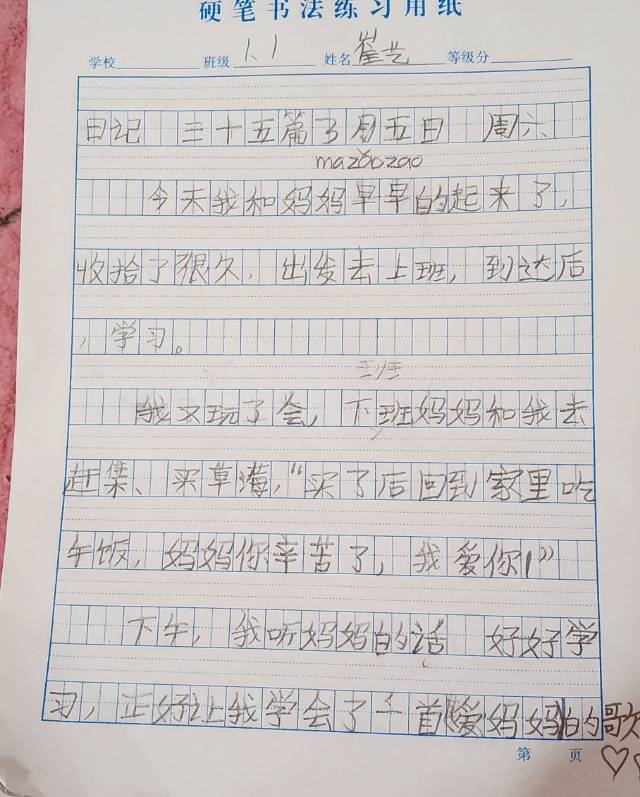 硬笔书法练习用纸
学校 班级 1.1 姓名 崔艺 等级分
日记 三十五篇 3月五日 周六
mazǎozao
今天我和妈妈早早的起来了,
收拾了很久,出发去上班,到达后
,学习。
我又玩了会,下班妈妈和我去
赶集、买草莓,“买了后回到家里吃
午饭,妈妈你辛苦了,我爱你!”
下午,我听妈妈的话 好好学
习,正好让我学会了一首爱妈妈的歌
第 页